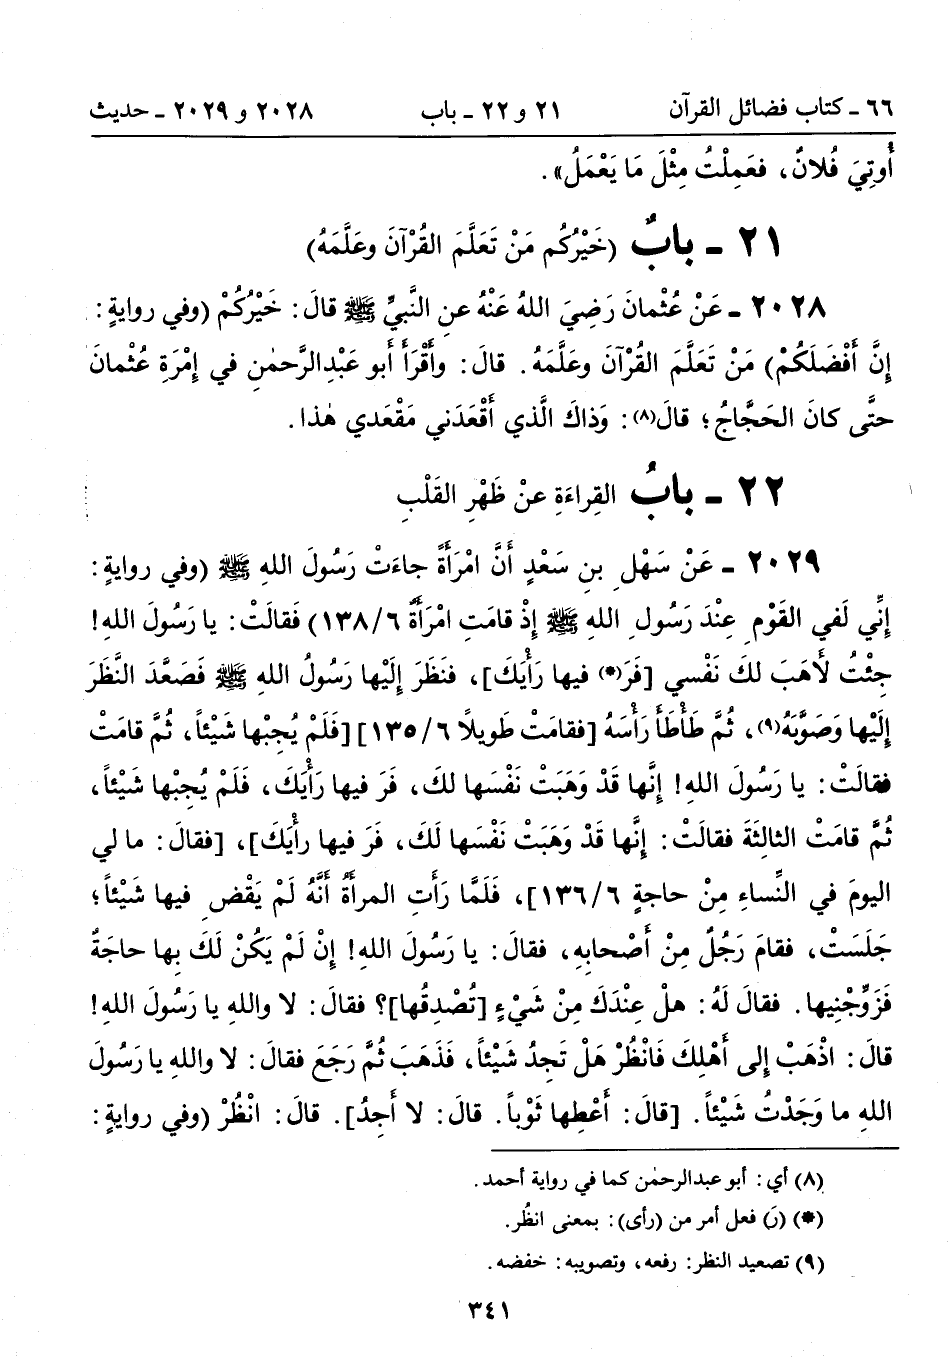 ٦٦ ـ كتاب فضائل القرآن ٢١ و ٢٢ ـ باب ٢٠٢٨ و ٢٠٢٩ ـ حديث
أُوتِيَ فُلانٌ، فعَمِلْتُ مِثْلَ مَا يَعْمَلُ».
٢١ ـ بابٌ (خَيْرُكُم مَنْ تَعَلَّمَ القُرْآنَ وعَلَّمَهُ)
٢٠٢٨ ـ عَنْ عُثْمانَ رَضِيَ اللهُ عَنْهُ عنِ النَّبيِّ ﷺ قالَ: خَيْرُكُمْ (وفي روايةٍ:
إِنَّ أَفْضَلَكُمْ) مَنْ تَعَلَّمَ القُرْآنَ وعلَّمَهُ. قالَ: وأَقْرَأَ أَبو عَبْدِالرَّحمٰنِ في إِمْرَةِ عُثْمانَ
حتَّى كانَ الحَجَّاجُ؛ قالَ(٨): وَذاكَ الَّذي أَقْعَدَني مَقْعَدي هٰذا.
٢٢ ـ بابُ القِراءَةِ عنْ ظَهْرِ القَلْبِ
٢٠٢٩ ـ عَنْ سَهْلِ بنِ سَعْدٍ أَنَّ امْرَأَةً جاءَتْ رَسُولَ اللهِ ﷺ (وفي روايةٍ:
إِنِّي لَفي القَوْمِ عِنْدَ رَسُولِ اللهِ ﷺ إِذْ قامَتِ امْرَأَةٌ ٦/١٣٨) فَقالَتْ: يا رَسُولَ اللهِ!
جِئْتُ لأَهَبَ لكَ نَفْسي [فَرَ(*) فيها رَأْيَكَ]، فنَظَرَ إِلَيْها رَسُولُ اللهِ ﷺ فَصَعَّدَ النَّظَرَ
إِلَيْها وَصَوَّبَهُ(٩)، ثُمَّ طَأْطَأَ رَأْسَهُ [فقامَتْ طَويلاً ٦/١٣٥] [فَلَمْ يُجِبْها شَيْئاً، ثُمَّ قامَتْ
فقالَتْ: يا رَسُولَ اللهِ! إِنَّها قَدْ وَهَبَتْ نَفْسَها لكَ، فَرَ فيها رَأْيَكَ، فَلَمْ يُجِبْها شَيْئاً،
ثُمَّ قامَتْ الثالثَةَ فقالَتْ: إِنَّها قَدْ وَهَبَتْ نَفْسَها لَكَ، فَرَ فيها رأْيَكَ]، [فقالَ: ما لي
اليومَ في النِّساءِ مِنْ حاجةٍ ٦/١٣٦]، فَلَمَّا رَأَتِ المرأَةُ أَنَّهُ لَمْ يَقْضِ فيها شَيْئاً؛
جَلَسَتْ، فقامَ رَجُلٌ مِنْ أَصْحابِهِ، فقالَ: يا رَسُولَ اللهِ! إِنْ لَمْ يَكُنْ لَكَ بها حاجَةٌ
فَزَوِّجْنِيها. فقالَ لَهُ: هلْ عِنْدَكَ مِنْ شَيْءٍ [تُصْدِقُها]؟ فقالَ: لا واللهِ يا رَسُولَ اللهِ!
قالَ: اذْهَبْ إِلى أَهْلِكَ فَانْظُرْ هَلْ تَجِدُ شَيْئاً، فَذَهَبَ ثُمَّ رَجَعَ فقالَ: لا واللهِ يا رَسُولَ
اللهِ ما وَجَدْتُ شَيْئاً. [قالَ: أَعْطِها ثَوْباً. قالَ: لا أَجِدُ]. قالَ: انْظُرْ (وفي روايةٍ:
(٨) أي: أبو عبدالرحمٰن كما في رواية أحمد.
(*) (رَ) فعل أمر من (رأى): بمعنى انظُر.
(٩) تصعيد النظر: رفعه، وتصويبه: خفضه.
٣٤١